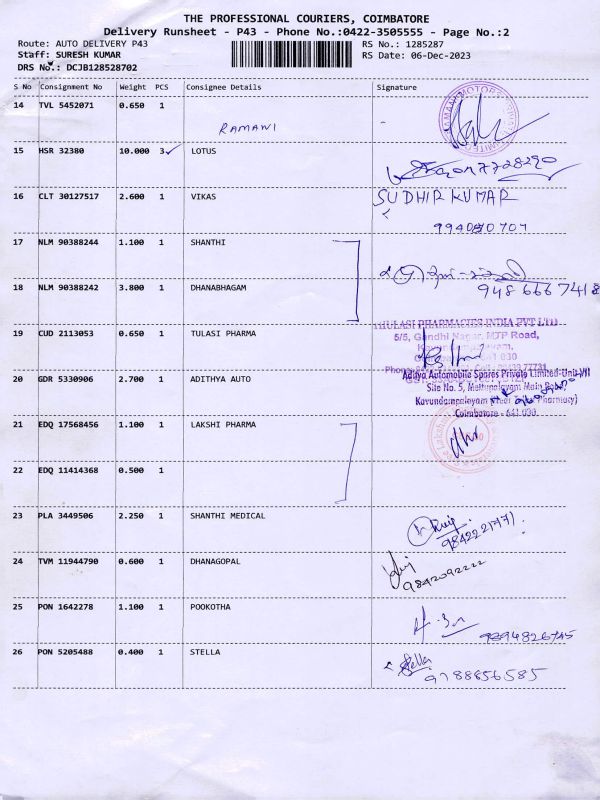 THE PROFESSIONAL COURIERS, COIMBATORE
Delivery Runsheet - P43 - Phone No.:0422-3505555 - Page No.:2
Route: AUTO DELIVERY P43 RS No.: 1285287
Staff: SURESH KUMAR RS Date: 06-Dec-2023
DRS No.: DCJB128528702
S No Consignment No Weight PCS Consignee Details Signature
14 TVL 5452071 0.650 1 RAMANI -
15 HSR 32380 10.000 3 LOTUS
16 CLT 30127517 2.600 1 VIKAS SUDHIR KUMAR
17 NLM 90388244 1.100 1 SHANTHI
18 NLM 90388242 3.800 1 DHANABHAGAM 948 666 7418
19 CUD 2113053 0.650 1 TULASI PHARMA
THULASI PHARMACIES INDIA PVT LTD
5/5, Gandhi Nagar, MTP Road,
20 GDR 5330906 2.700 1 ADITHYA AUTO
Aditya Automobile Spares Private Limited-Unit-VII
Site No. 5, Mettupalayam Main Road
Kavundampalayam (Near Pharmacy)
Coimbatore - 641 030.
21 EDQ 17568456 1.100 1 LAKSHI PHARMA
22 EDQ 11414368 0.500 1
23 PLA 3449506 2.250 1 SHANTHI MEDICAL
24 TVM 11944790 0.600 1 DHANAGOPAL 9842092222
25 PON 1642278 1.100 1 POOKOTHA 9394826745
26 PON 5205488 0.400 1 STELLA Stella
9788856585